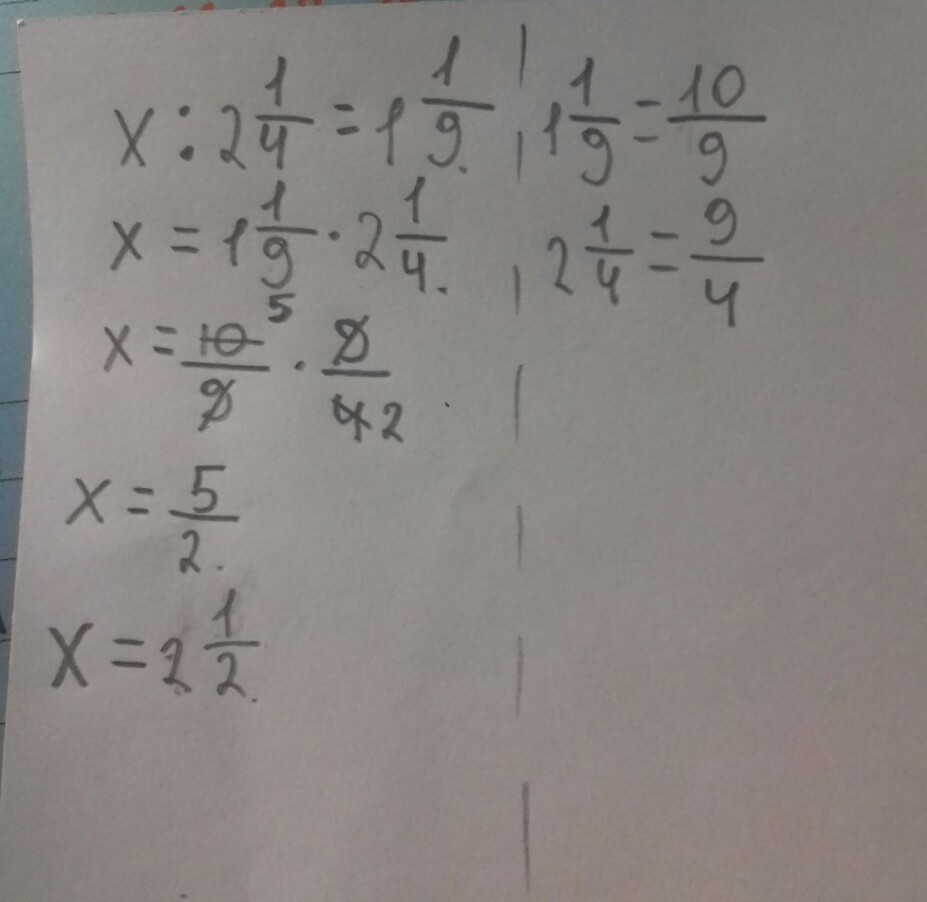 x : 2 1/4 = 1 1/9.
x = 1 1/9 · 2 1/4.
x = 10/9 5 · 9/4 2
x = 5/2.
x = 2 1/2.
1 1/9 = 10/9
2 1/4 = 9/4